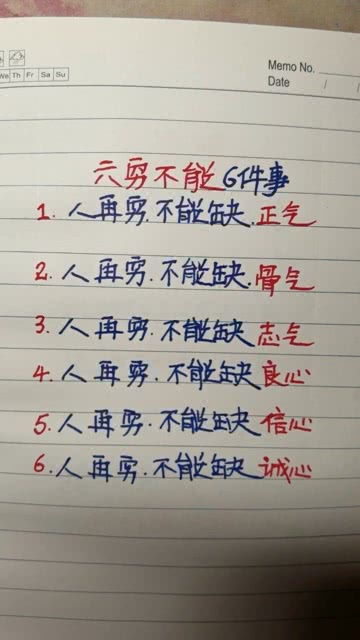 Memo No.
We Th Fr Sa Su
Date / /
六穷不能6件事
1. 人再穷.不能缺.正气
2. 人再穷.不能缺.骨气
3. 人再穷.不能缺志气
4. 人再穷.不能缺良心
5. 人再穷.不能缺信心
6. 人再穷.不能缺诚心